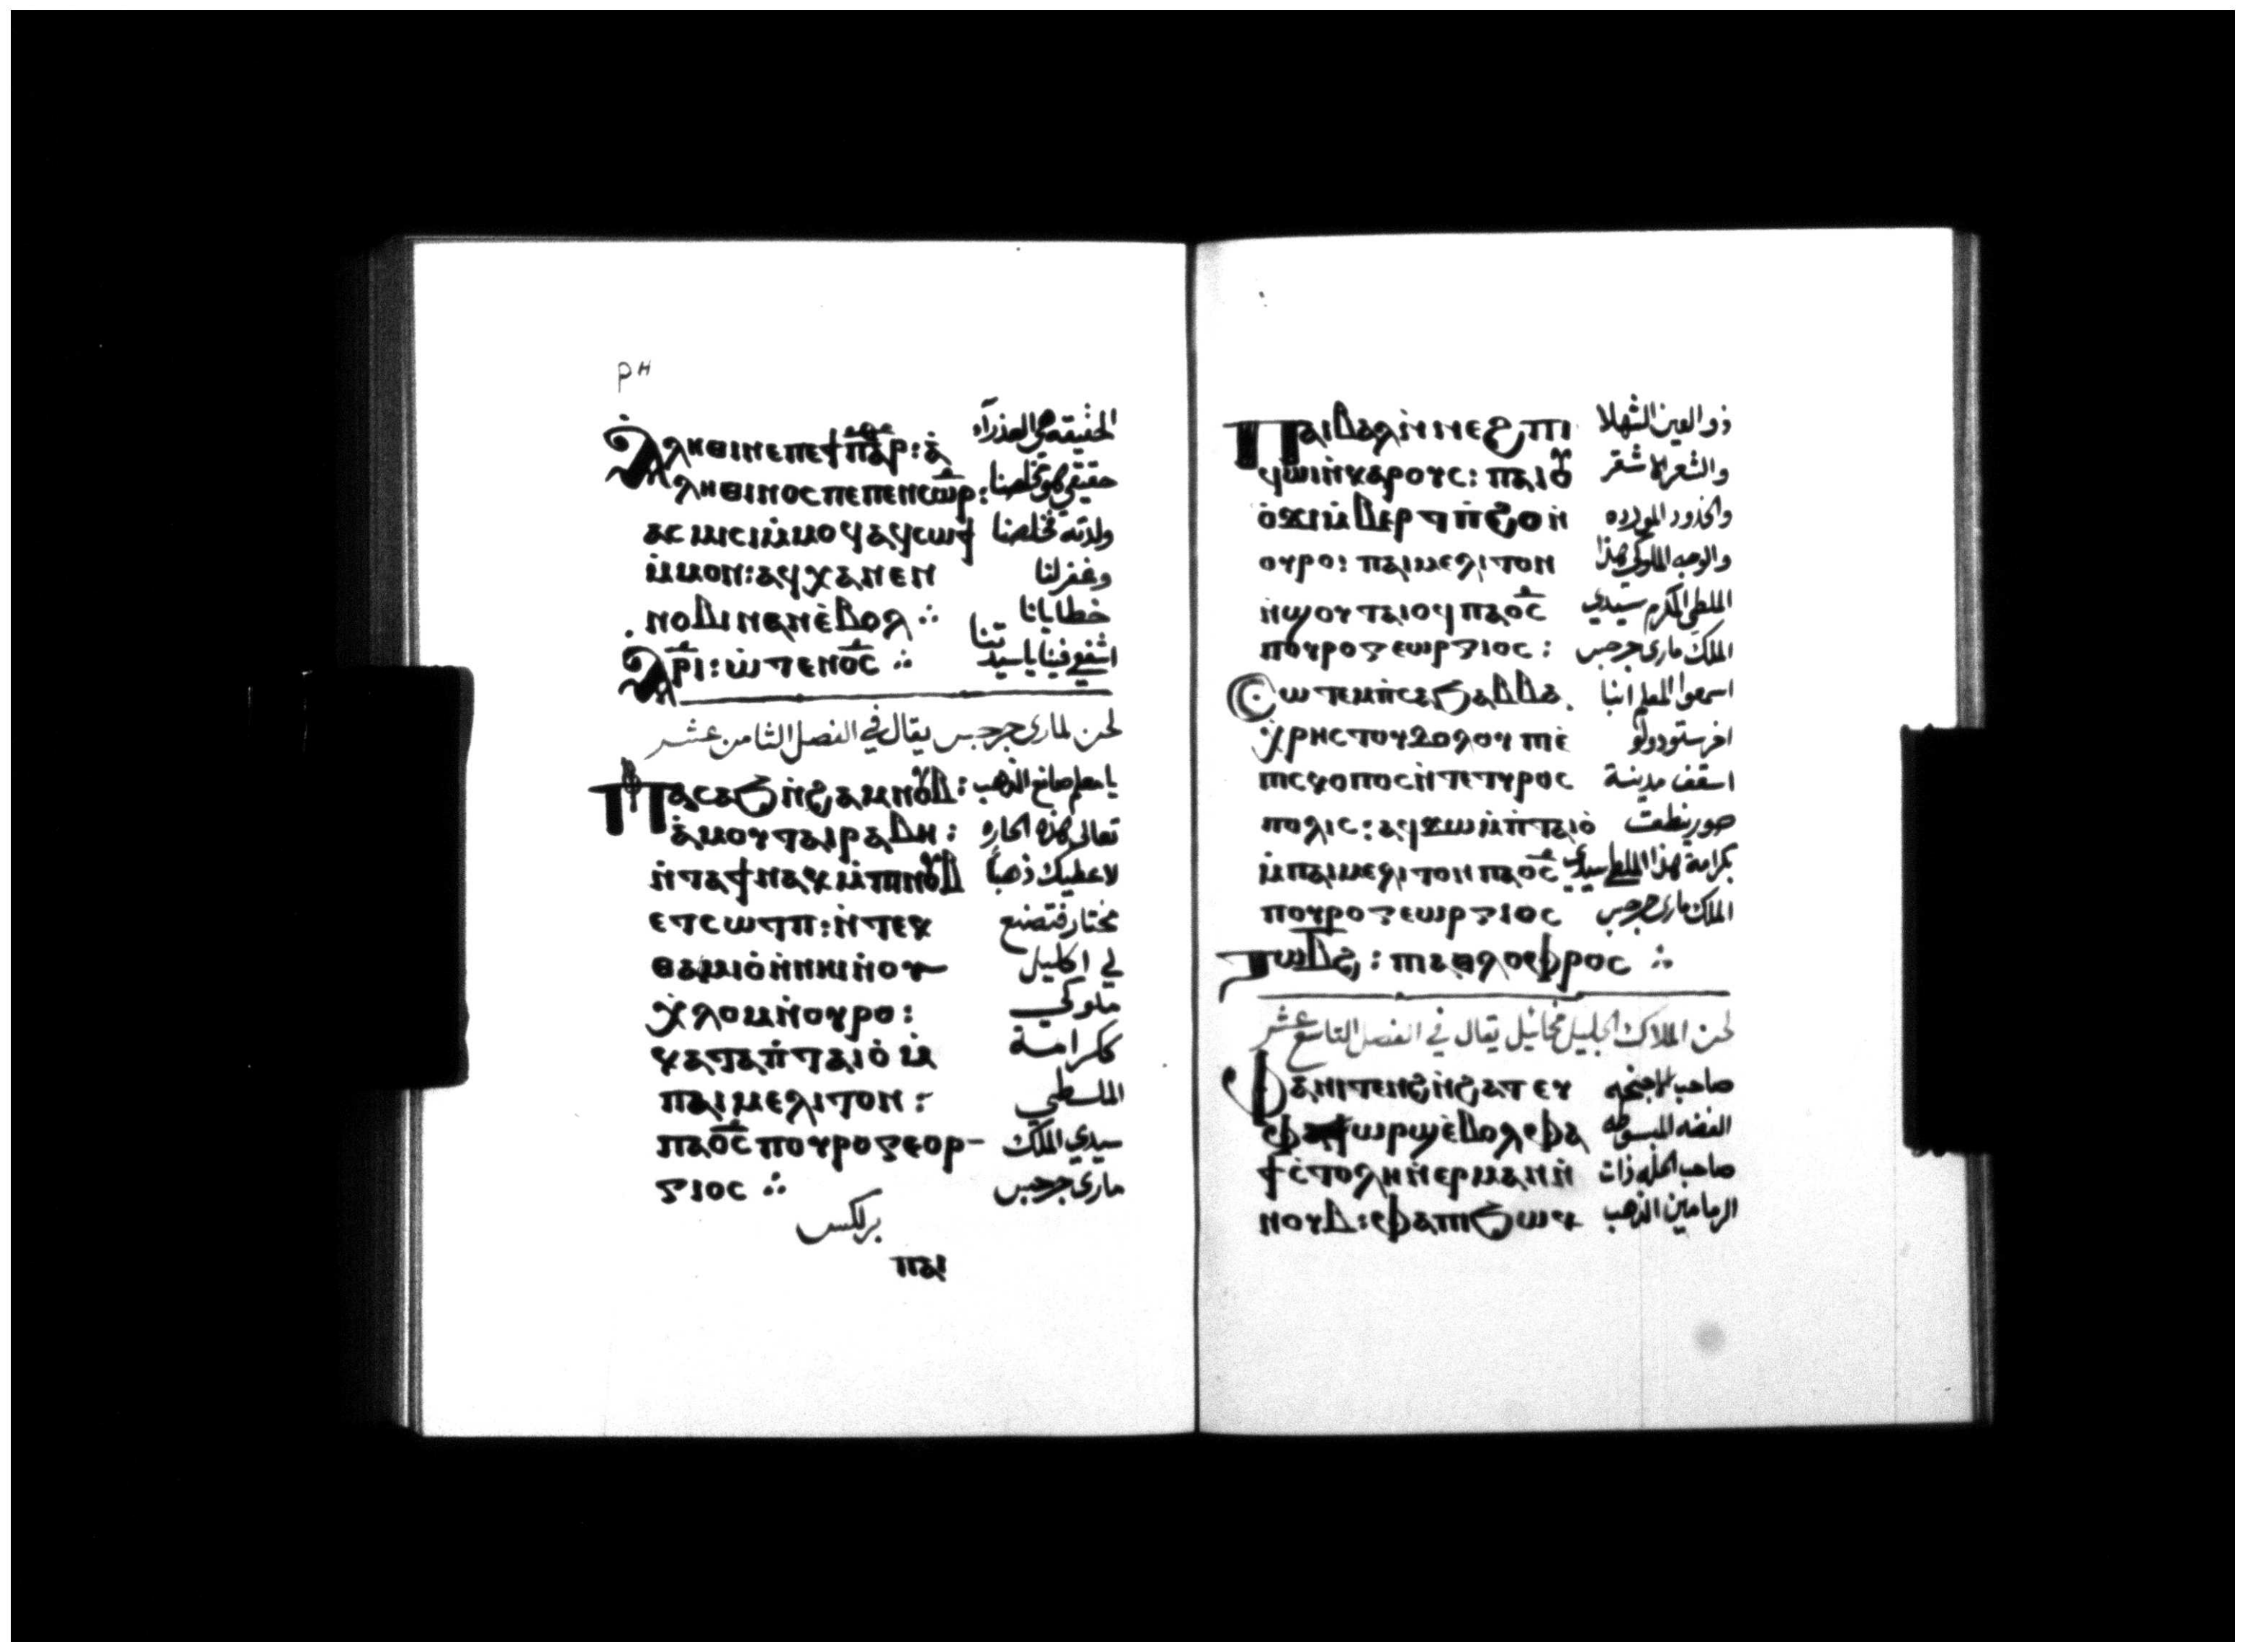 ⲣⲏ
ⲁⲗⲏⲑⲓⲛⲉ ⲡⲉ ϯⲡⲁⲣ: ⲁ̀ الحقيقه هي العذراء
ⲗⲏⲑⲓⲛⲟⲥ ⲡⲉ ⲡⲉⲛⲥⲱⲣ: حقيقي هو مخلصنا
ⲁⲥⲙⲓⲥⲓ ⲙ̀ⲙⲟϥ ⲁϥⲥⲱϯ ولدته مخلصنا
ⲙ̀ⲙⲟⲛ: ⲁϥⲭⲁ ⲛⲉⲛ وغفر لنا
ⲛⲟⲃⲓ ⲛⲁⲛ ⲉ̀ⲃⲟⲗ ⁖ خطايانا
ⲁⲣⲓ: ⲱ̀ ⲧⲉⲛⲟ̅ⲥ̅ ⁖ اشفعي فينا يا سيدتنا
لحن لماري جرجس يقال في الفصل الثامن عشر
ⲡⲁⲥⲁϧ ⲛ̀ϩⲁⲙⲛⲟⲩⲃ: يا معلم صانع الذهب
ⲁ̀ⲙⲟⲩ ⲧⲁⲓⲣⲁⲃⲏ: تعالى هذه الحاره
ⲛ̀ⲧⲁϯ ⲛⲁⲕ ⲙ̀ⲡⲓⲛⲟⲩⲃ لاعطيك ذهباً
ⲉⲧⲥⲱⲧⲡ: ⲛ̀ⲧⲉⲕ مختار فتصنع
ⲑⲁⲙⲓⲟ̀ ⲛⲏⲓ ⲛ̀ⲟⲩ لي اكليل
ⲭ̀ⲗⲟⲙ ⲛ̀ⲟⲩⲣⲟ: ملوكي
ⲕⲁⲧⲁ ⲡ̀ⲧⲁⲓⲟ̀ ⲙ̀ ككرامة
ⲡⲁⲓⲙⲉⲗⲓⲧⲟⲛ: الملطي
ⲡⲁⲟ̅ⲥ̅ ⲡⲟⲩⲣⲟ ⲅⲉⲟⲣ- سيدي الملك
ⲅⲓⲟⲥ ⁖ ماري جرجس
برلكس
ⲡⲁⲓ
ⲡⲁⲓⲃⲁⲗ ⲛ̀ⲛⲉϩⲡⲓ ذو العين الشهلا
ϥⲱⲓ ⲛ̀ⲭⲁⲣⲟⲩⲥ: ⲡⲁⲓⲟⲩ والشعر الاشقر
ⲟ̀ϫⲓ ⲙ̀ⲃⲉⲣⲧ ⲡ̀ϩⲟ ⲛ̀ والخدود المورده
ⲟⲩⲣⲟ: ⲡⲁⲓⲙⲉⲗⲓⲧⲟⲛ والوجه الملوكي هذا
ⲛ̀ϣⲟⲩⲧⲁⲓⲟϥ ⲡⲁⲟ̅ⲥ̅ الملطي المكرم سيدي
ⲡⲟⲩⲣⲟ ⲅⲉⲱⲣⲅⲓⲟⲥ: الملك ماري جرجس
Ⲥⲱⲧⲉⲙ ⲡ̀ⲥⲁϧ ⲁⲃⲃⲁ اسمعوا المعلم انبا
ⲭ̀ⲣⲏⲥⲧⲟⲩⲇⲟⲗⲟⲩ ⲡⲓⲉ̀ اخرستودولو
ⲡⲓⲥⲕⲟⲡⲟⲥ ⲛ̀ⲧⲉ ⲧⲩⲣⲟⲥ اسقف مدينة
ⲡⲟⲗⲓⲥ: ⲁϥϫⲱ ⲙ̀ⲡ̀ⲧⲁⲓⲟ̀ صور نطقت
ⲙ̀ⲡⲁⲓⲙⲉⲗⲓⲧⲟⲛ ⲡⲁⲟ̅ⲥ̅ بكرامة هذا الملطي سيدي
ⲡⲟⲩⲣⲟ ⲅⲉⲱⲣⲅⲓⲟⲥ الملك ماري جرجس
ⲧⲱⲃϩ: ⲡⲓⲁⲑⲗⲟⲫⲣⲟⲥ ⁖
لحن الملاك الجليل مخائيل يقال في الفصل التاسع عشر
ⲫⲁ ⲛⲓⲧⲉⲛϩ ⲛ̀ϩⲁⲧ ⲉⲩ صاحب الاجنحه
ⲫⲱⲣϣ ⲉ̀ⲃⲟⲗ ⲫⲁ الفضه المبسوطه
ϯⲥ̀ⲧⲟⲗⲏ ⲛ̀ⲉⲣⲙⲁⲛ ⲛ̀ صاحب الحله ذات
ⲛⲟⲩⲃ: ⲫⲁ ⲡⲓϧⲱⲕ الرمامين الذهب